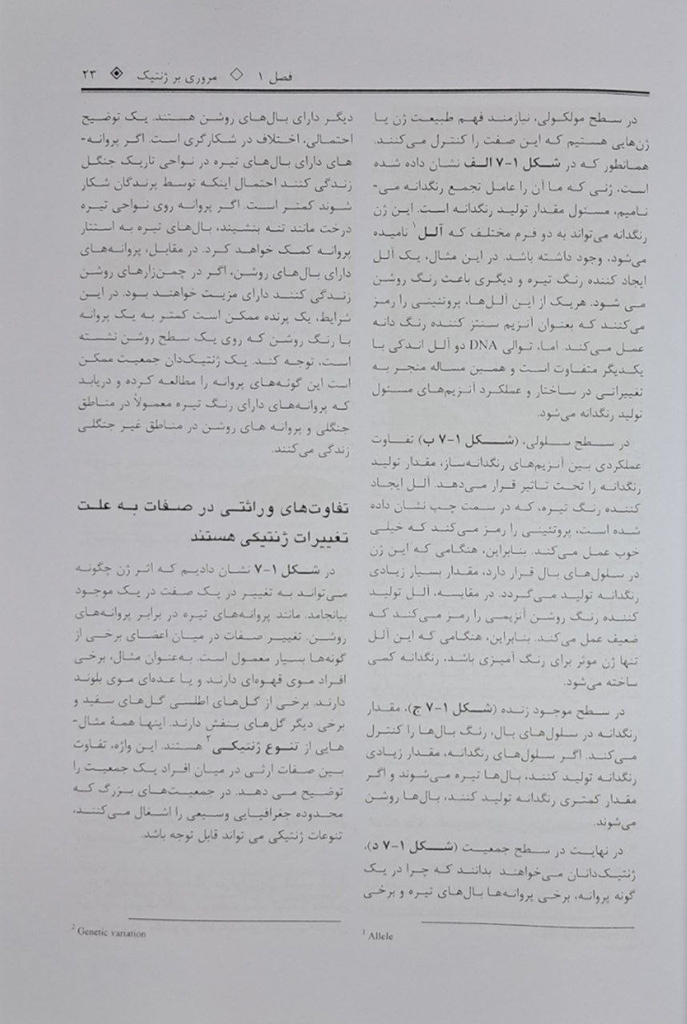 فصل ۱ ◇ مروری بر ژنتیک ۲۳
در سطح مولکولی، نیازمند فهم طبیعت ژن یا
ژن‌هایی هستیم که این صفت را کنترل می‌کنند.
همانطور که در شکل ۱-۷ الف نشان داده شده
است، ژنی که ما آن را عامل تجمع رنگدانه می-
نامیم، مسئول مقدار تولید رنگدانه است. این ژن
رنگدانه می‌تواند به دو فرم مختلف که آلل۱ نامیده
می‌شود، وجود داشته باشد. در این مثال، یک آلل
ایجاد کننده رنگ تیره و دیگری باعث رنگ روشن
می شود. هریک از این آلل‌ها، پروتئینی را رمز
می‌کنند که بعنوان آنزیم سنتز کننده رنگ دانه
عمل می‌کند. اما، توالی DNA دو آلل اندکی با
یکدیگر متفاوت است و همین مساله منجر به
تغییراتی در ساختار و عملکرد آنزیم‌های مسئول
تولید رنگدانه می‌شود.
در سطح سلولی، (شکل ۱-۷ ب) تفاوت
عملکردی بین آنزیم‌های رنگدانه‌ساز، مقدار تولید
رنگدانه را تحت تاثیر قرار می‌دهد. آلل ایجاد
کننده رنگ تیره، که در سمت چپ نشان داده
شده است، پروتئینی را رمز می‌کند که خیلی
خوب عمل می‌کند. بنابراین، هنگامی که این ژن
در سلول‌های بال قرار دارد، مقدار بسیار زیادی
رنگدانه تولید می‌گردد. در مقایسه، آلل تولید
کننده رنگ روشن آنزیمی را رمز می‌کند که
ضعیف عمل می‌کند. بنابراین، هنگامی که این آلل
تنها ژن موثر برای رنگ آمیزی باشد، رنگدانه کمی
ساخته می‌شود.
در سطح موجود زنده (شکل ۱-۷ ج)، مقدار
رنگدانه در سلول‌های بال، رنگ بال‌ها را کنترل
می‌کند. اگر سلول‌های رنگدانه، مقدار زیادی
رنگدانه تولید کنند، بال‌ها تیره می‌شوند و اگر
مقدار کمتری رنگدانه تولید کنند، بال‌ها روشن
می‌شوند.
در نهایت در سطح جمعیت (شکل ۱-۷ د)،
ژنتیک‌دانان می‌خواهند بدانند که چرا در یک
گونه پروانه، برخی پروانه‌ها بال‌های تیره و برخی
1 Allele
دیگر دارای بال‌های روشن هستند. یک توضیح
احتمالی، اختلاف در شکارگری است. اگر پروانه-
های دارای بال‌های تیره در نواحی تاریک جنگل
زندگی کنند احتمال اینکه توسط پرندگان شکار
شوند کمتر است. اگر پروانه روی نواحی تیره
درخت مانند تنه بنشیند، بال‌های تیره به استتار
پروانه کمک خواهد کرد. در مقابل، پروانه‌های
دارای بال‌های روشن، اگر در چمن‌زارهای روشن
زندگی کنند دارای مزیت خواهند بود. در این
شرایط، یک پرنده ممکن است کمتر به یک پروانه
با رنگ روشن که روی یک سطح روشن نشسته
است، توجه کند. یک ژنتیک‌دان جمعیت ممکن
است این گونه‌های پروانه را مطالعه کرده و دریابد
که پروانه‌های دارای رنگ تیره معمولاً در مناطق
جنگلی و پروانه های روشن در مناطق غیر جنگلی
زندگی می‌کنند.
تفاوت‌های وراثتی در صفات به علت
تغییرات ژنتیکی هستند
در شکل ۱-۷ نشان دادیم که اثر ژن چگونه
می‌تواند به تغییر در یک صفت در یک موجود
بیانجامد. مانند پروانه‌های تیره در برابر پروانه‌های
روشن. تغییر صفات در میان اعضای برخی از
گونه‌ها بسیار معمول است. به‌عنوان مثال، برخی
افراد موی قهوه‌ای دارند و یا عده‌ای موی بلوند
دارند. برخی از گل‌های اطلسی گل‌های سفید و
برخی دیگر گل‌های بنفش دارند. اینها همهٔ مثال-
هایی از تنوع ژنتیکی۲ هستند. این واژه، تفاوت
بین صفات ارثی در میان افراد یک جمعیت را
توضیح می دهد. در جمعیت‌های بزرگ که
محدوده جغرافیایی وسیعی را اشغال می‌کنند،
تنوعات ژنتیکی می تواند قابل توجه باشد.
2 Genetic variation